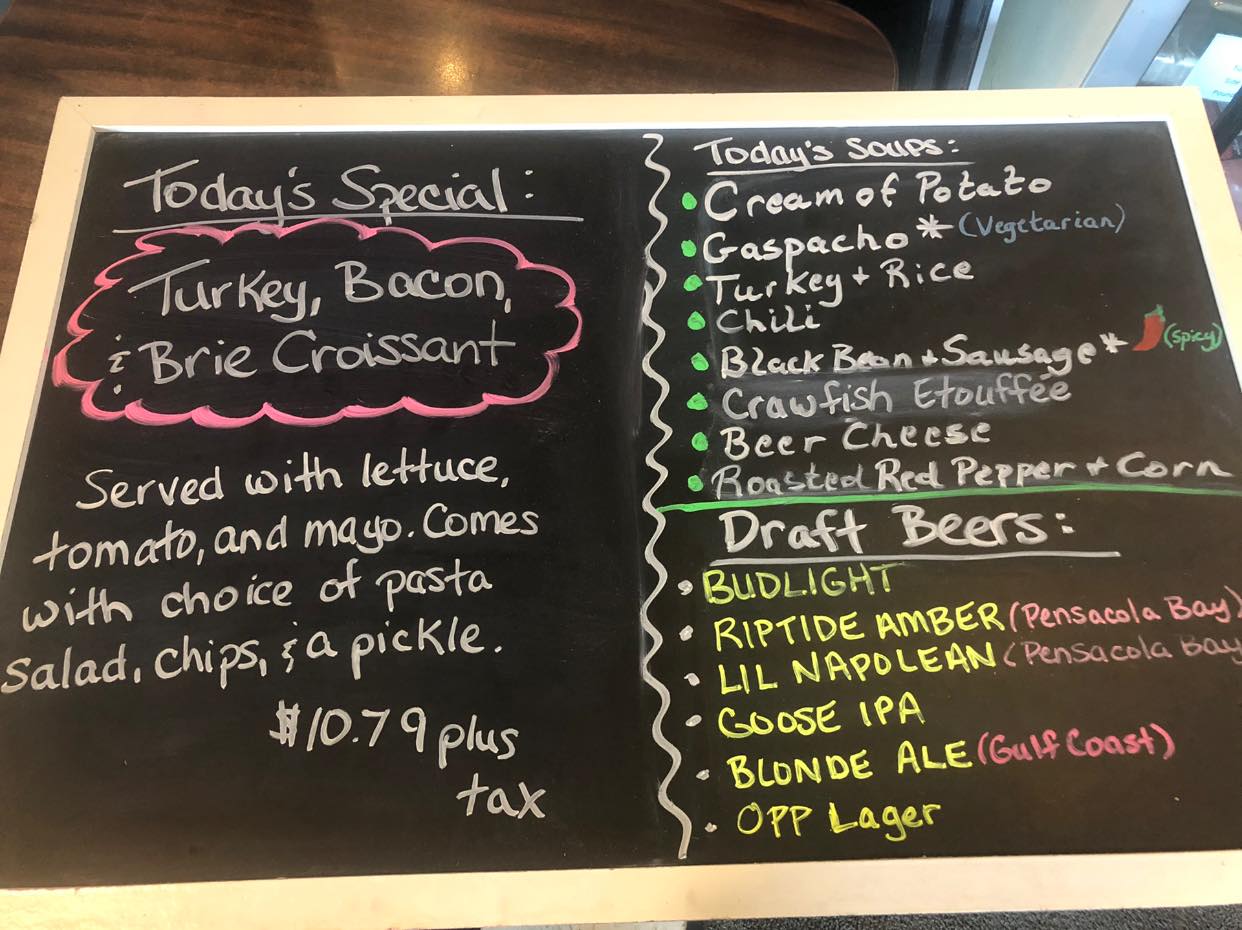 Today's Special:
Turkey, Bacon,
& Brie Croissant
Served with lettuce,
tomato, and mayo. Comes
with choice of pasta
salad, chips, & a pickle.
$10.79 plus
tax
Today's Soups:
• Cream of Potato
• Gaspacho * (Vegetarian)
• Turkey + Rice
• Chili
• Black Bean + Sausage * (Spicy)
• Crawfish Etouffée
• Beer Cheese
• Roasted Red Pepper + Corn
Draft Beers:
• BUDLIGHT
• RIPTIDE AMBER (Pensacola Bay)
• LIL NAPOLEAN (Pensacola Bay
• GOOSE IPA
• BLONDE ALE (Gulf Coast)
• OPP Lager